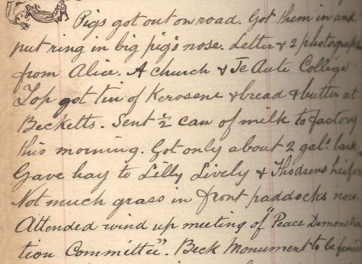 Pigs got out on road. Got them in and
put ring in big pig's nose. Letter & 2 photographs
from Alice. A church & Te Aute College
Top got tin of Kerosene & bread & butter at
Becketts. Sent ½ can of milk to factory
this morning. Got only about 2 gals. back
Gave hay to Lilly Lively & heifers
Not much grass in front paddocks now.
Attended wind up meeting of "Peace Demonstra
tion Committee". Beck Monument to be